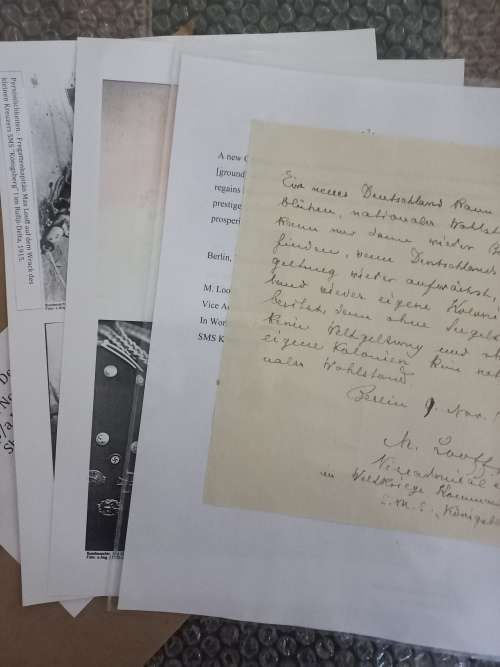 Persönlichkeiten.- Fregattenkapitän Max Looff auf dem Wrack des
kleinen Kreuzers SMS "Königsberg" im Rufiji-Delta, 1915.
A new
[ground
regains
prestige
prosperi
Berlin,
M. Loo
Vice Ad
In Wor
SMS K
Ein neues Deutschland kann
blühen, nationaler Wohlsta
kann nur dann wieder
finden, wenn Deutschlands
geltung wieder aufwächst,
und wieder eigene Koloni
besitzt, denn ohne Seegelt
keine Weltgeltung und oh
eigene Kolonien kein nat
naler Wohlstand.
Berlin 9. Nov.
M. Looff
Vizeadmiral
im Weltkriege Komman
S.M.S. „Königsb